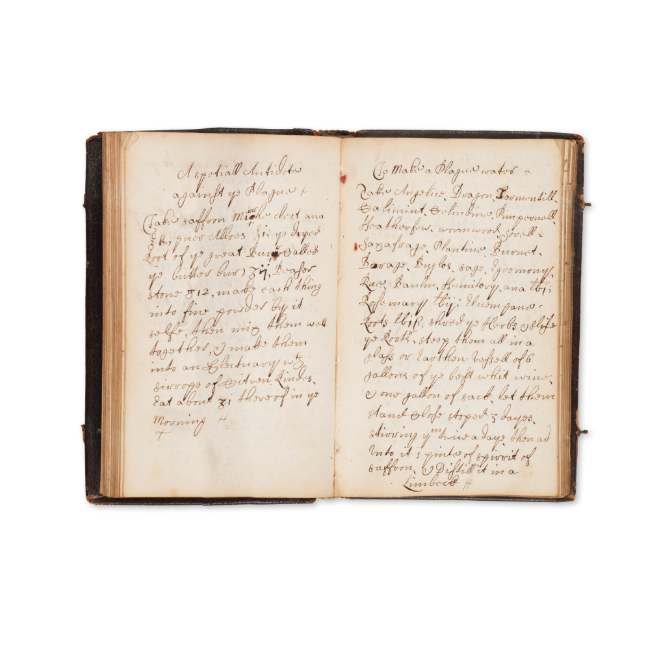 A spetiall Antidote
against ye Plague
Take saffron Mirrhe elect ana
Aloes ye
Root of ye great Burr called
ye butter bur ʒij, Beasor
stone 12, make each thing
into fine powder by it
selfe, then mix them well
together, & make them
into an Electuary wth
sirrope of Citron Rindes.
Eat about ʒi thereof in ye
Morning
To Make a Plague water
Take Angelica, Dragon, Tormentill,
Salimint, Selindine, Pimpernell,
Heatherfew, wormwood, sorell
Sasafrage, Plantine, Burnet,
Borage, Buglos, sage, Egremony,
Rue, Baulm, Humitory, ana
Rosemary Elicompane
Roots ℔ß, shred ye Herbs & slise
ye Roots, steep them all in a
glass or Earthen vessell of 6
gallons of ye best whit wine,
& one gallon of sack, let them
stand close stoped 3 dayes,
stirring ym twice a daye, then ad
Into it pinte of spirrit of
saffron, & Distill it in a
Limbeck